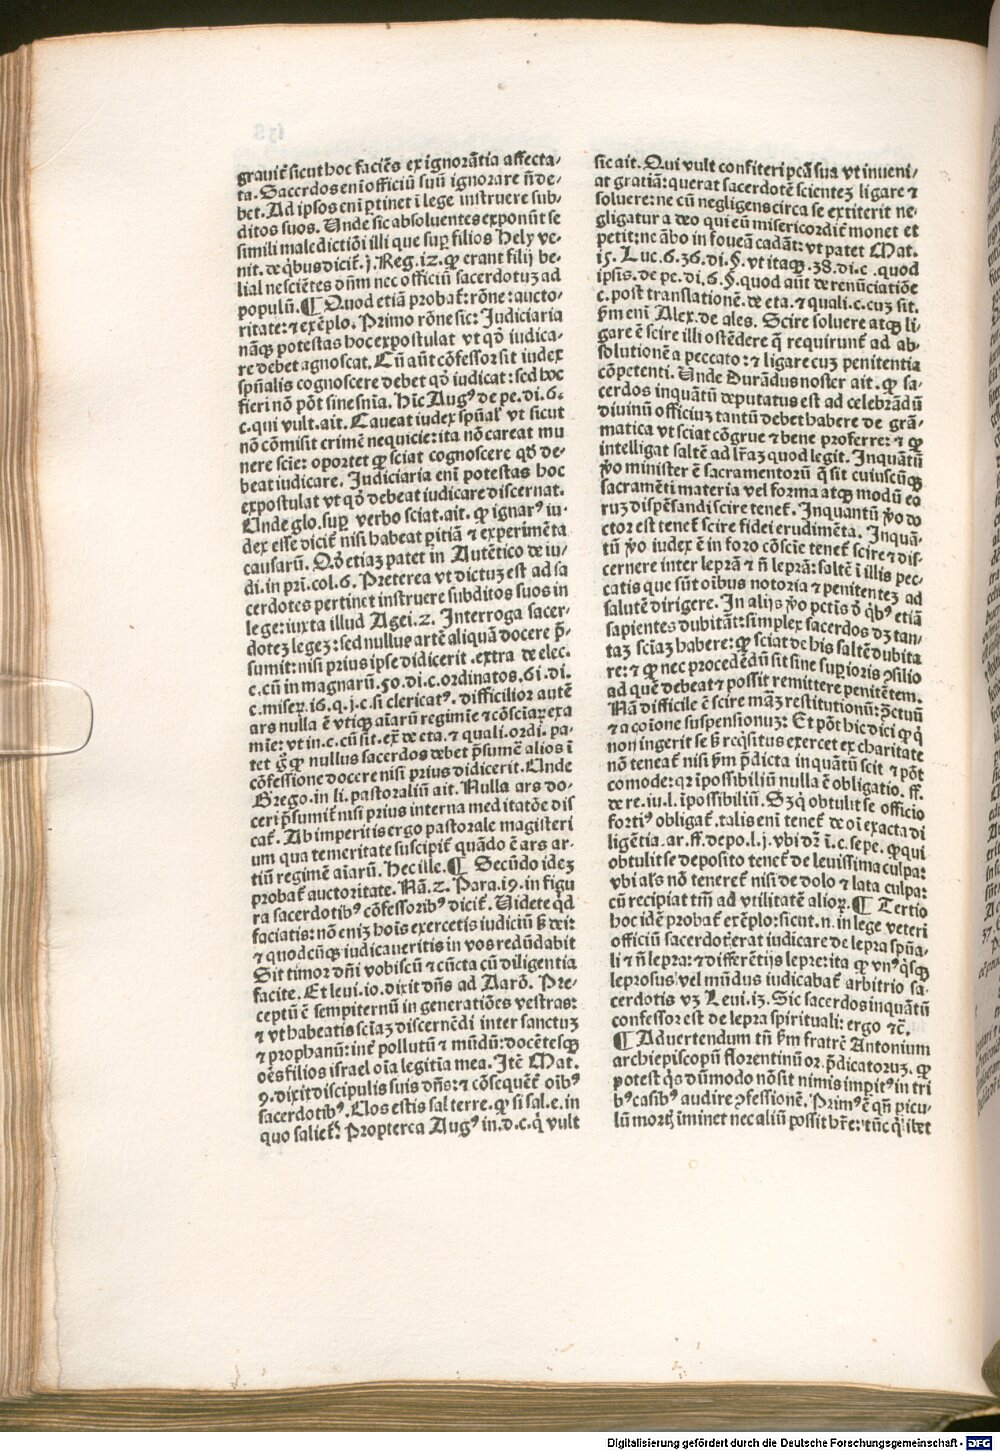 grauit̄ sicut hoc faciēs ex ignorātia affecta-
ta. Sacerdos eni officiū suū ignorare n̄ de-
bet. Ad ipsos eni ꝑtinet ī lege instruere sub-
ditos suos. Unde sic absoluentes exponūt se
simili maledictiōi illi que suꝑ filios Hely ve-
nit. de qͥbus dicit̄. j. Reg. iz. ꝙ erant filij be-
lial nesciētes dn̄m nec officiū sacerdotuʒ ad
populū. ¶ Quod etiā probat̄: rōne: aucto-
ritate: ⁊ exēplo. Primo rōne sic: Judiciaria
nāqꝫ potestas hoc expostulat vt qd̓ iudica-
re debet agnoscat. Cū aūt cōfessor sit iudex
spūalis cognoscere debet qd̓ iudicat: sed hoc
fieri nō pōt sine sn̄ia. Hic Augꝰ de pe. di. 6.
c. qui vult. ait. Caueat iudex spūal̓ vt sicut
nō cōmisit crimē nequicie: ita nō careat mu
nere scīe: oportet ꝙ sciat cognoscere qd̓ de-
beat iudicare. Judiciaria eni potestas hoc
expostulat vt qd̓ debeat iudicare discernat.
Unde glo. suꝑ verbo sciat. ait. ꝙ ignarꝰ iu-
dex esse dicit̄ nisi habeat ꝑitiā ⁊ experimēta
causarū. Qd̓ etiaʒ patet in Autētico de iu/
di. in pri. col. 6. Preterea vt dictuʒ est ad sa
cerdotes pertinet instruere subditos suos in
lege: iuxta illud Agei. z. Interroga sacer-
doteʒ legeʒ: sed nullus artē aliquā docere p̄-
sumit: nisi prius ipse didicerit. extra de elec.
c. cū in magnarū. 50. di. c. ordinatos. 61. di.
c. miseꝝ. i6. q. j. c. si clericatꝰ. difficilior autē
ars nulla ē vtiqꝫ aīarū regimīe ⁊ cōsciaꝝ exa
mīe: vt in. c. cū sit. ex̄ de eta. ⁊ quali. ordi. pa-
tet gͦ ꝙ nullus sacerdos debet p̄sumē alios ī
cōfessione docere nisi prius didicerit. Unde
Grego. in li. pastoraliū ait. Nulla ars do-
ceri p̄sumit̄ nisi prius interna meditatōe dis
cat̄. Ab imperitis ergo pastorale magisteri
um qua temeritate suscipit̄ quādo ē ars ar-
tiū regimē aīarū. Hec ille. ¶ Secūdo ideʒ
probat̄ auctoritate. Nā. z. Para. i9. in figu
ra sacerdotibꝰ cōfessoribꝰ dicit̄. Uidete qd̓
faciatis: nō eniʒ hois exercetis iudiciū ß dei:
⁊ quodcūqꝫ iudicaueritis in vos redūdabit
Sit timor dn̄i vobiscū ⁊ cūcta cū diligentia
facite. Et leui. io. dixit dn̄s ad Aarō. Pre-
ceptū ē sempiternū in generatiōes vestras:
⁊ vt habeatis sciāʒ discernēdi inter sanctuʒ
⁊ prophanū: int̄ pollutū ⁊ mūdū: docētesqꝫ
oēs filios israel oīa legitīa mea. Itē Mat.
9. dixit discipulis suis dn̄s: ⁊ cōsequēt̄ oībꝰ
sacerdotibꝰ. Uos estis sal terre. ꝙ si sal. e. in
quo saliet̄. Propterea Augꝰ in. d. c. qͥ vult
sic ait. Qui vult confiteri pc̄ā sua vt inueni/
at gratiā: querat sacerdotē scienteʒ ligare ⁊
soluere: ne cū negligens circa se extiterit ne-
gligatur a deo qui eū misericordit̄ monet et
petit: ne ābo in foueam cadāt: vt patet Mat.
i5. Luc. 6. 36. di. §. vt itaqꝫ. 38. di. c. quod
ipsis. de pe. di. 6. §. quod aūt de renūciatiōe
c. post translationē. de eta. ⁊ quali. c. cuʒ sit.
ẜm eni Alex. de ales. Scire soluere atqꝫ li-
gare ē scire illi ostēdere q̄ requirunt̄ ad ab-
solutionē a peccato: ⁊ ligare cuʒ penitentia
cōpetenti. Unde Durādus noster ait. ꝙ sa-
cerdos inquātū deputatus est ad celebrādū
diuinū officiuʒ tantū debet habere de grā-
matica vt sciat cōgrue ⁊ bene proferre: ⁊ ꝙ
intelligat saltē ad lr̄aʒ quod legit. Inquātū
ꝟo minister ē sacramentorū q̄ sit cuiuscūqꝫ
sacramēti materia vel forma atqꝫ modū eo
ruʒ dispēsandi scire tenet̄. Inquantū ꝟo do
ctor est tenet̄ scire fidei erudimēta. Inquā-
tū ꝟo iudex ē in foro cōscīe tenet̄ scire ⁊ dis-
cernere inter leprā ⁊ n̄ leprā: saltē ī illis pec-
catis que sūt oībus notoria ⁊ penitenteʒ ad
salutē dirigere. In alijs ꝟo pctīs d̓ qͥbꝰ etiā
sapientes dubitāt: simplex sacerdos dʒ tan-
taʒ sciaʒ habere: ꝙ sciat de his saltē dubita
re: ⁊ ꝙ nec procedēdū sit sine suꝑioris ꝯsilio
ad quē debeat ⁊ possit remittere penitētem.
Nā difficile ē scire māʒ restitutionū: p̄ctuū
⁊ a ꝯione suspensionuʒ: Et pōt hic dici ꝙ qͥ
non ingerit se ß reqͥsitus exercet ex charitate
nō teneat̄ nisi ẜm p̄dicta inquātū scit ⁊ pōt
comode: qꝛ īpossibiliū nulla ē obligatio. ff.
de re. iu. l. īpossibiliū. Sʒ qͥ obtulit se officio
fortiꝰ obligat̄. talis eni tenet̄ de oī exacta di
ligētia. ar. ff. depo. l. j. vbi dr̄ ī. c. sepe. ꝙ qui
obtulit se deposito tenet̄ de leuissima culpa:
vbi al̓s nō teneret̄ nisi de dolo ⁊ lata culpa:
cū recipiat tm̄ ad vtilitatē alioꝝ. ¶ Tertio
hoc idē probat̄ exēplo: sicut. n. in lege veteri
officiū sacerdot̄ erat iudicare de lepra spūa-
li ⁊ n̄ lepra: ⁊ differētijs lepre: ita ꝙ vnꝰqͥsqꝫ
leprosus vel mūdus iudicabat̄ arbitrio sa-
cerdotis vʒ Leui. i3. Sic sacerdos inquātū
confessor est de lepra spirituali: ergo ⁊c̄.
¶ Aduertendum tn̄ ẜm fratrē Antonium
archiepiscopū florentinū or. p̄dicatoruʒ. ꝙ
potest qͥs dūmodo nō sit nimis imꝑitꝰ in tri
bꝰ casibꝰ audire ꝯfessionē. Primꝰ ē qn̄ picu-
lū mortꝭ iminet nec aliū possit hr̄e: tūc qͥlibet